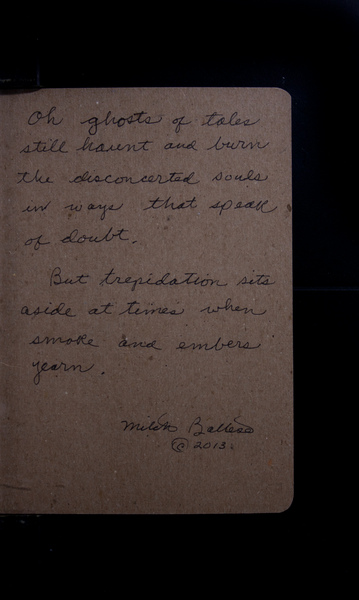 Oh ghosts of tales
still haunt and burn
the disconcerted souls
in ways that speak
of doubt.
But trepidation sits
aside at times when
smoke and embers
yearn.
© 2013.